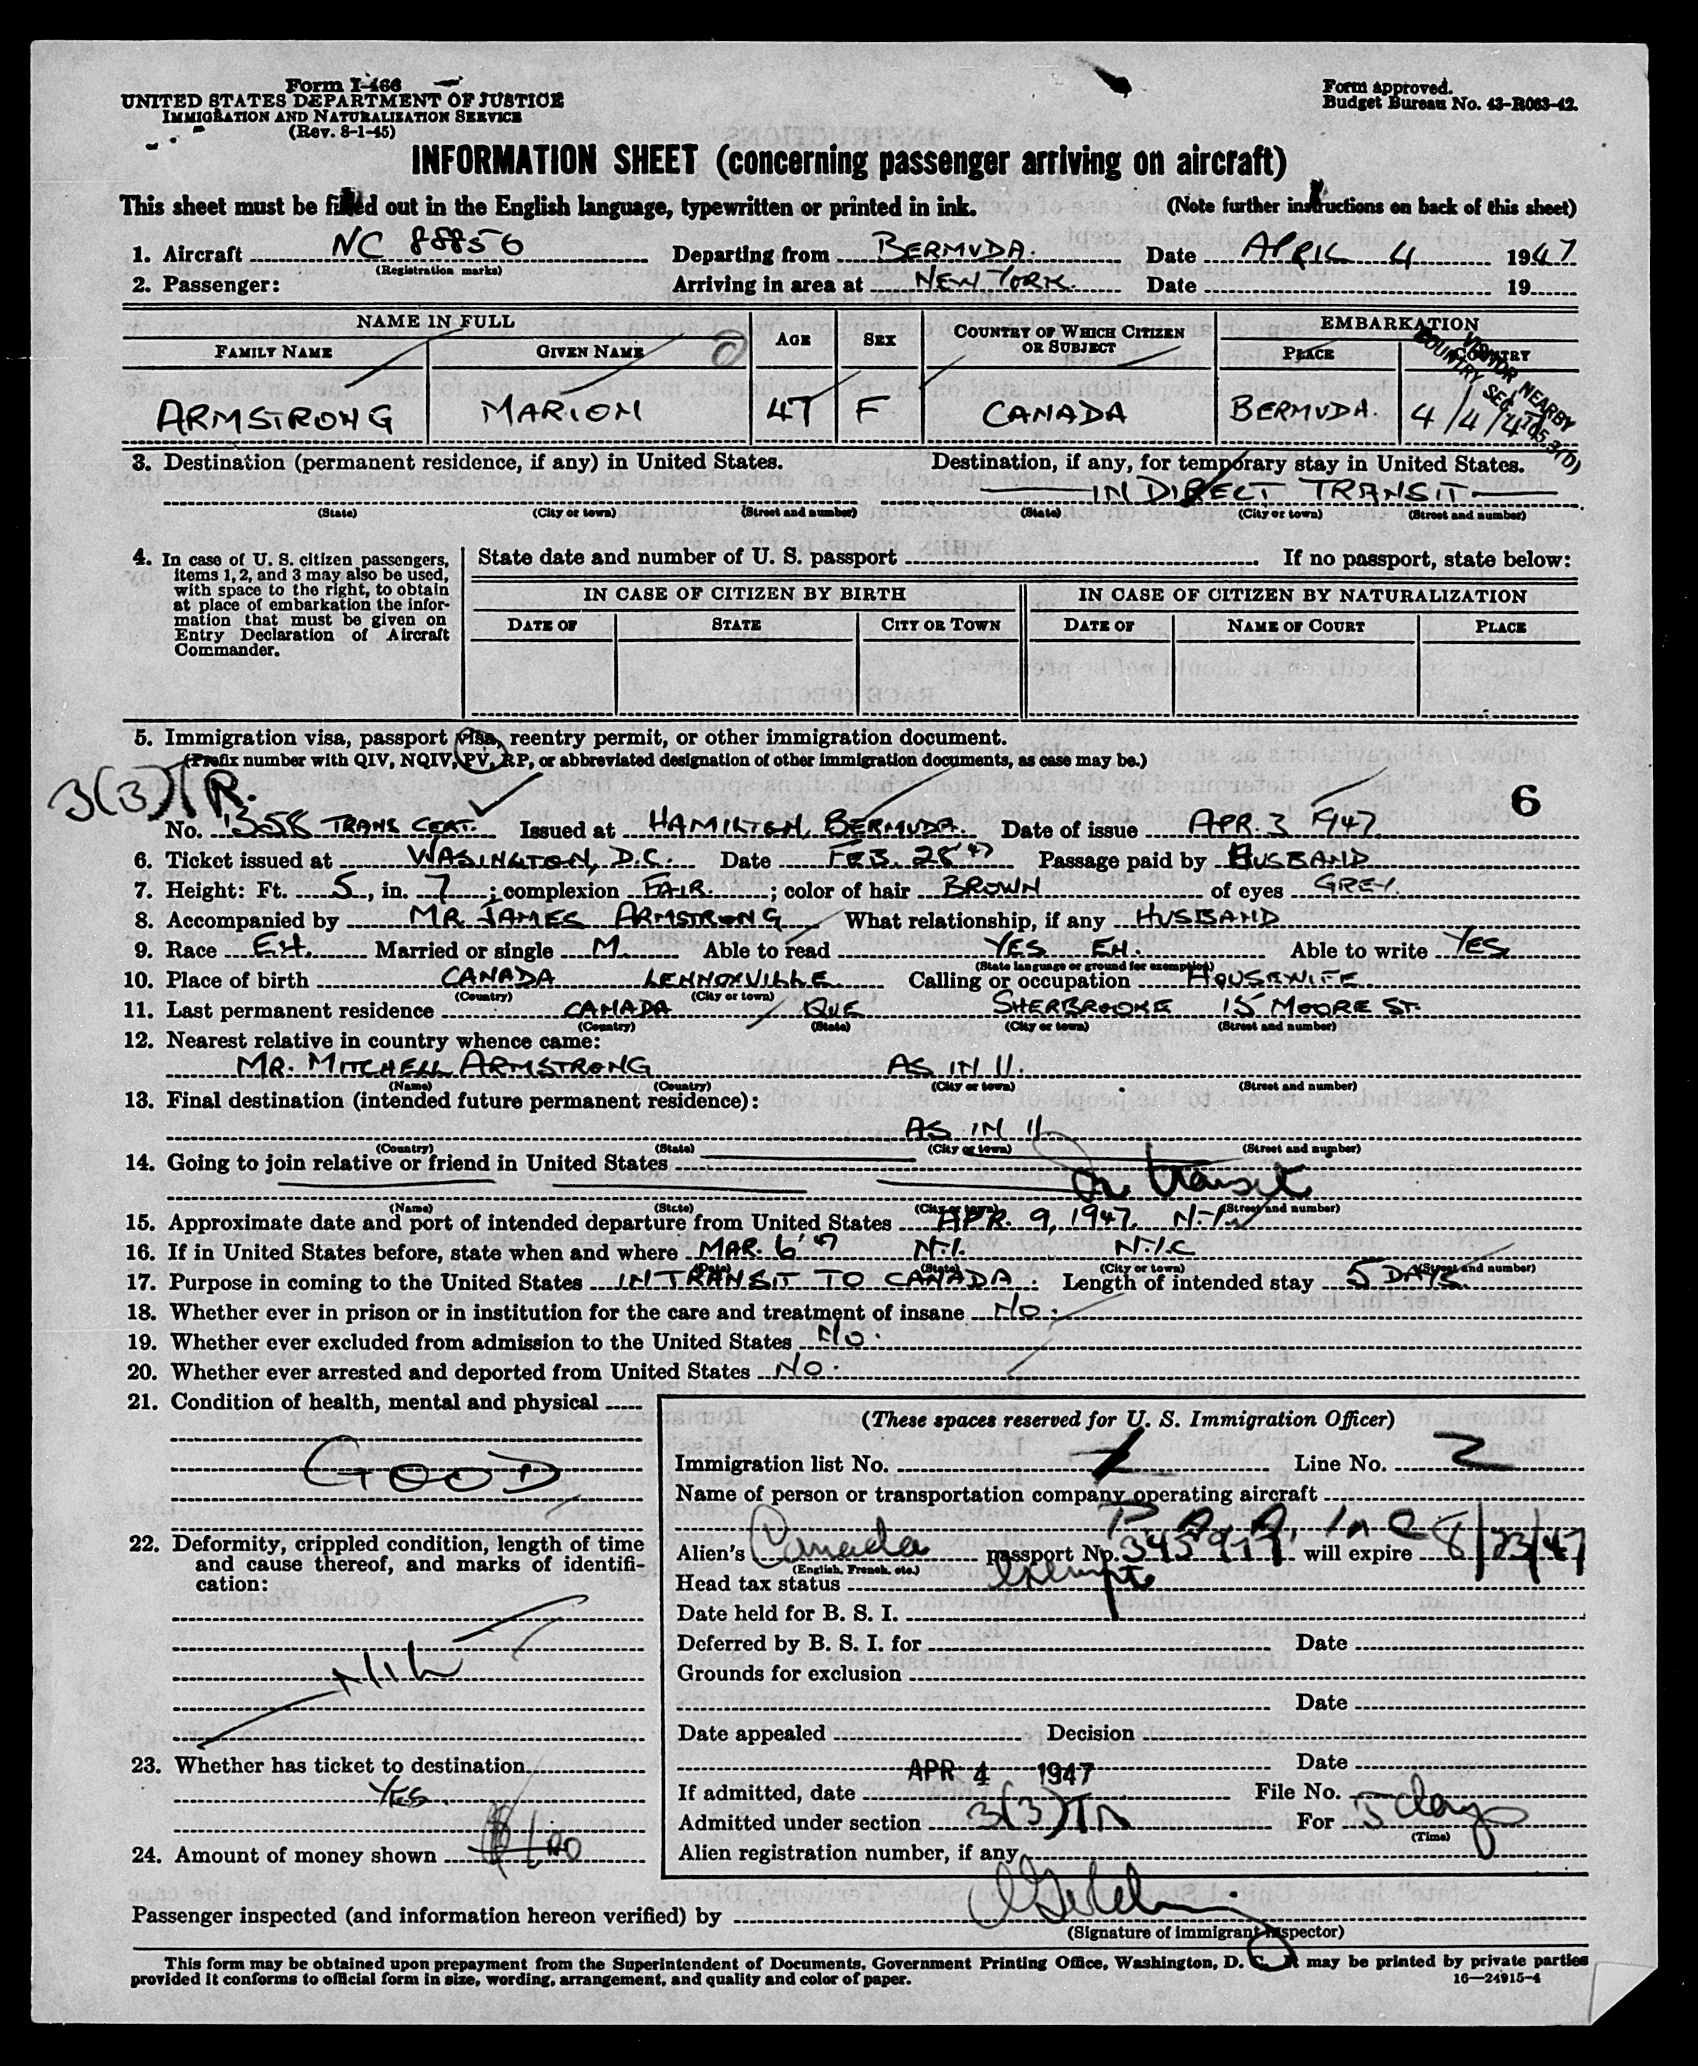 Form I-466
UNITED STATES DEPARTMENT OF JUSTICE
IMMIGRATION AND NATURALIZATION SERVICE
(Rev. 8-1-45)
Form approved.
Budget Bureau No. 43-R063-42.
INFORMATION SHEET (concerning passenger arriving on aircraft)
This sheet must be filled out in the English language, typewritten or printed in ink. (Note further instructions on back of this sheet)
1. Aircraft NC 88856 Departing from BERMUDA. Date APRIL 4 1947
(Registration marks)
2. Passenger: Arriving in area at NEW YORK. Date 19
NAME IN FULL AGE SEX COUNTRY OF WHICH CITIZEN OR SUBJECT EMBARKATION
FAMILY NAME GIVEN NAME PLACE COUNTRY
VISITOR NEARBY
COUNTRY SEC. 175.3(D)
ARMSTRONG MARION 47 F CANADA BERMUDA. 4/4/47
3. Destination (permanent residence, if any) in United States. Destination, if any, for temporary stay in United States.
IN DIRECT TRANSIT
(State) (City or town) (Street and number) (State) (City or town) (Street and number)
4. In case of U. S. citizen passengers, items 1, 2, and 3 may also be used, with space to the right, to obtain at place of embarkation the information that must be given on Entry Declaration of Aircraft Commander.
State date and number of U. S. passport If no passport, state below:
IN CASE OF CITIZEN BY BIRTH IN CASE OF CITIZEN BY NATURALIZATION
DATE OF STATE CITY OR TOWN DATE OF NAME OF COURT PLACE
5. Immigration visa, passport visa, reentry permit, or other immigration document.
(Prefix number with QIV, NQIV, PV, RP, or abbreviated designation of other immigration documents, as case may be.)
3(3) TR. 6
No. 1358 TRANS CERT. Issued at HAMILTON, BERMUDA. Date of issue APR. 3 1947
6. Ticket issued at WASINGTON, D.C. Date FEB. 28 47 Passage paid by HUSBAND
7. Height: Ft. 5, in. 7; complexion FAIR.; color of hair BROWN of eyes GREY.
8. Accompanied by MR JAMES ARMSTRONG What relationship, if any HUSBAND
9. Race EH. Married or single M. Able to read YES EH. Able to write YES.
(State language or ground for exemption)
10. Place of birth CANADA LENNOXVILLE. Calling or occupation HOUSEWIFE
(Country) (City or town)
11. Last permanent residence CANADA QUE SHERBROOKE 15 MOORE ST.
(Country) (State) (City or town) (Street and number)
12. Nearest relative in country whence came:
MR. MITCHELL ARMSTRONG AS IN 11.
(Name) (Country) (City or town) (Street and number)
13. Final destination (intended future permanent residence):
AS IN 11.
(Country) (State) (City or town) (Street and number)
14. Going to join relative or friend in United States
In transit
(Name) (State) (City or town) (Street and number)
15. Approximate date and port of intended departure from United States APR. 9, 1947. N.Y.
16. If in United States before, state when and where MAR. 6 47 N.Y. N.Y.C
(Date) (State) (City or town) (Street and number)
17. Purpose in coming to the United States IN TRANSIT TO CANADA. Length of intended stay 5 DAYS.
18. Whether ever in prison or in institution for the care and treatment of insane NO.
19. Whether ever excluded from admission to the United States NO.
20. Whether ever arrested and deported from United States NO.
21. Condition of health, mental and physical
GOOD
22. Deformity, crippled condition, length of time and cause thereof, and marks of identification:
NIL
23. Whether has ticket to destination
YES.
24. Amount of money shown $100
(These spaces reserved for U. S. Immigration Officer)
Immigration list No. 1 Line No. 2
Name of person or transportation company operating aircraft
P. A. A. Inc
Alien's Canada passport No. 345979 will expire 8/23/47
(English, French, etc.)
Head tax status exempt
Date held for B. S. I.
Deferred by B. S. I. for Date
Grounds for exclusion
Date
Date appealed Decision
Date
If admitted, date APR 4 1947 File No.
Admitted under section 3(3)TR For 5 days
(Time)
Alien registration number, if any
Passenger inspected (and information hereon verified) by
(Signature of immigrant inspector)
This form may be obtained upon prepayment from the Superintendent of Documents, Government Printing Office, Washington, D. C. It may be printed by private parties
provided it conforms to official form in size, wording, arrangement, and quality and color of paper. 16—24915-4